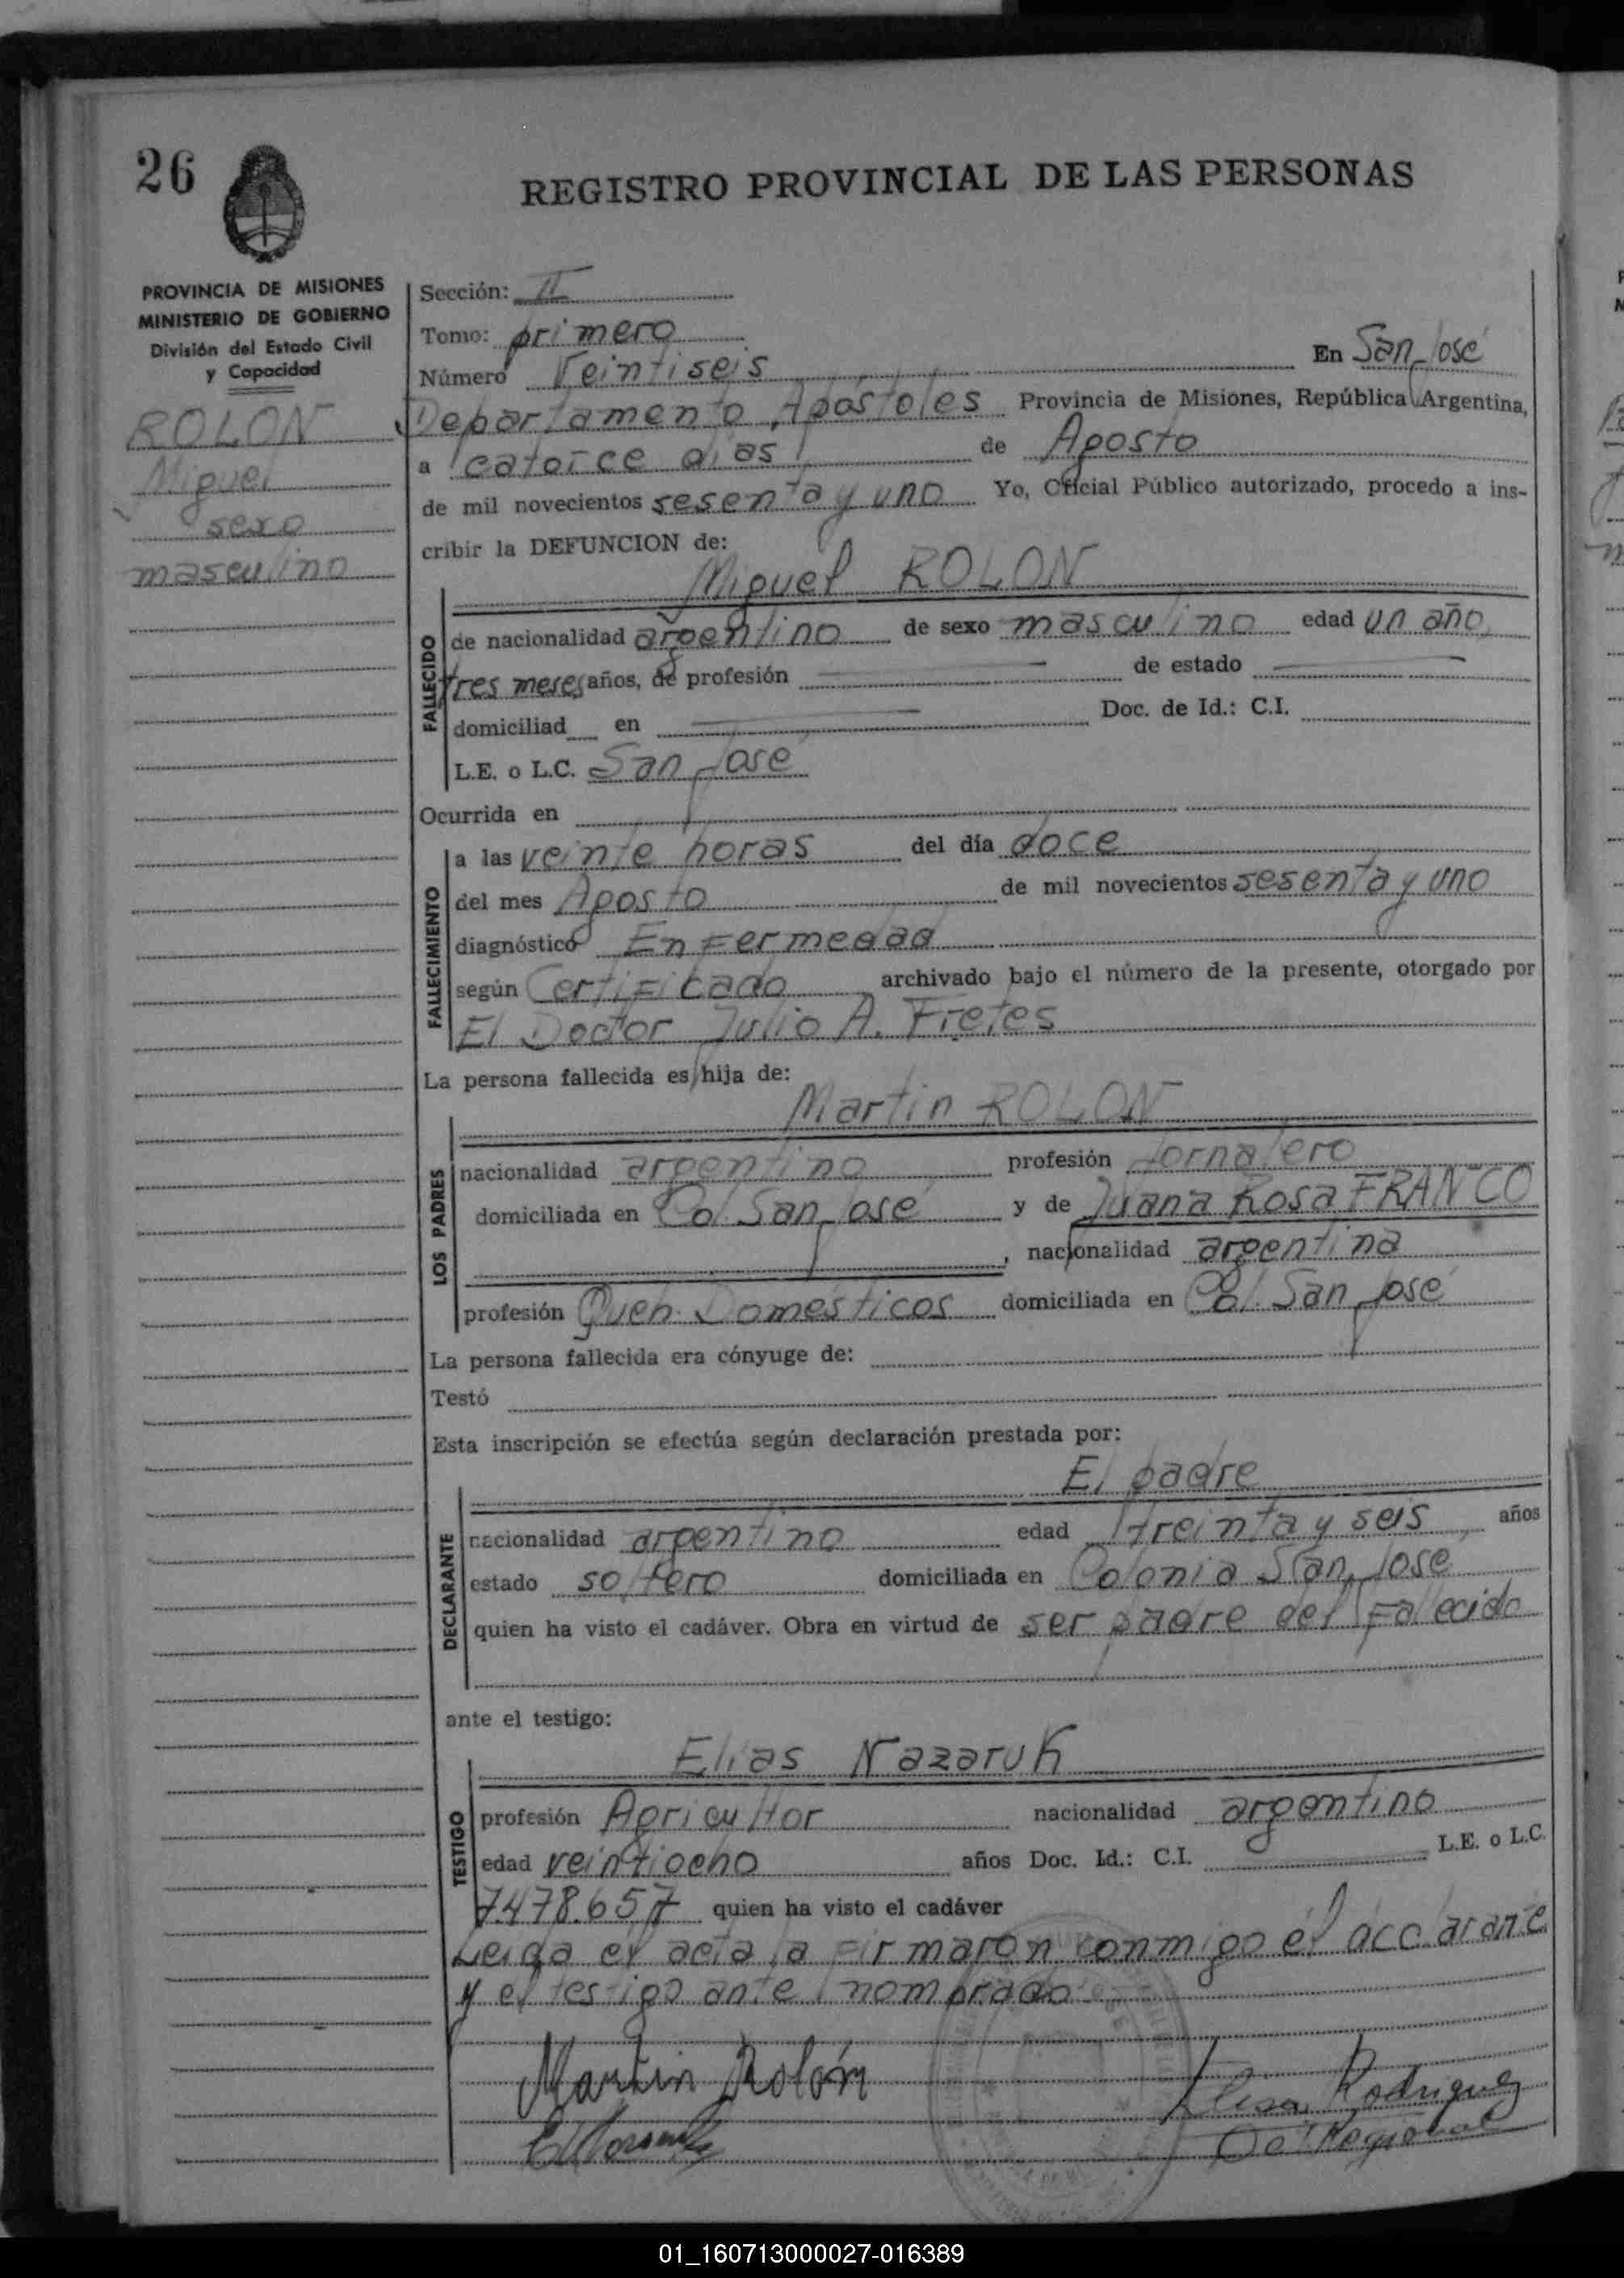 26
REGISTRO PROVINCIAL DE LAS PERSONAS
PROVINCIA DE MISIONES
MINISTERIO DE GOBIERNO
División del Estado Civil
y Capacidad
ROLON
Miguel
sexo
masculino
Sección: II
Tomo: primero
Número Veintiseis En San José
Departamento Apóstoles Provincia de Misiones, República Argentina,
a catorce días de Agosto
de mil novecientos sesenta y uno Yo, Oficial Público autorizado, procedo a ins-
cribir la DEFUNCION de:
Miguel ROLON
FALLECIDO
de nacionalidad argentino de sexo masculino edad un año,
tres meses años, de profesión de estado
domiciliad en Doc. de Id.: C.I.
L.E. o L.C. San José
Ocurrida en
FALLECIMIENTO
a las veinte horas del día doce
del mes Agosto de mil novecientos sesenta y uno
diagnóstico Enfermedad
según Certificado archivado bajo el número de la presente, otorgado por
El Doctor Julio A. Fretes
La persona fallecida es hija de:
Martin ROLON
LOS PADRES
nacionalidad argentino profesión Jornalero
domiciliada en Col. San José y de Juana Rosa FRANCO
, nacionalidad argentina
profesión Queh. Domésticos domiciliada en Col. San José
La persona fallecida era cónyuge de:
Testó
Esta inscripción se efectúa según declaración prestada por:
El padre
DECLARANTE
nacionalidad argentino edad treinta y seis, años
estado soltero domiciliada en Colonia San José
quien ha visto el cadáver. Obra en virtud de ser padre del Fallecido
ante el testigo:
Elias Nazaruk
TESTIGO
profesión Agricultor nacionalidad argentino
edad veintiocho años Doc. Id.: C.I. L.E. o L.C.
7.478.657 quien ha visto el cadáver
Leida el acta la firmaron conmigo el
y el testigo ante nombrado
Martin Rolón
Elisa Rodriguez
Regional
01_160713000027-016389